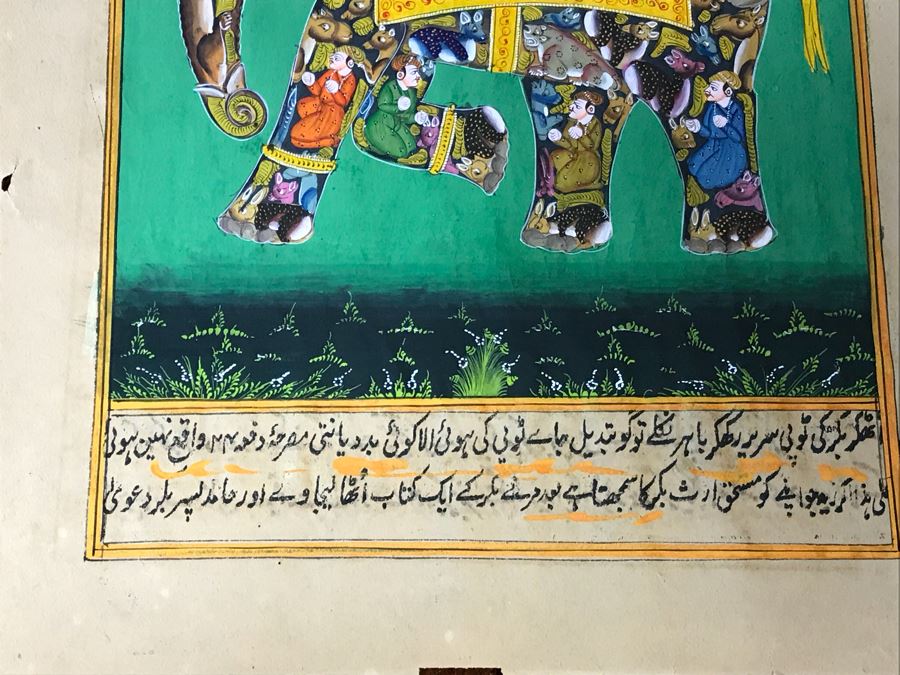 اٹھکر بکر کی ٹوپی سر پر رکھکر باہر نکلے تو گو تبدیل جاے ٹوپی کی ہوئی الا کوئی بد دیانتی مصرحۂ دفعہ ۲۴ واقع نہین ہوئی
علی ہذا اگر زید جو اپنے کو مستحق ارث بکر کا سمجھتا ہے بعد مرنے بکر کے ایک کتاب اُٹھا لیجاوے اور حامد پسر بکر دعویٰ